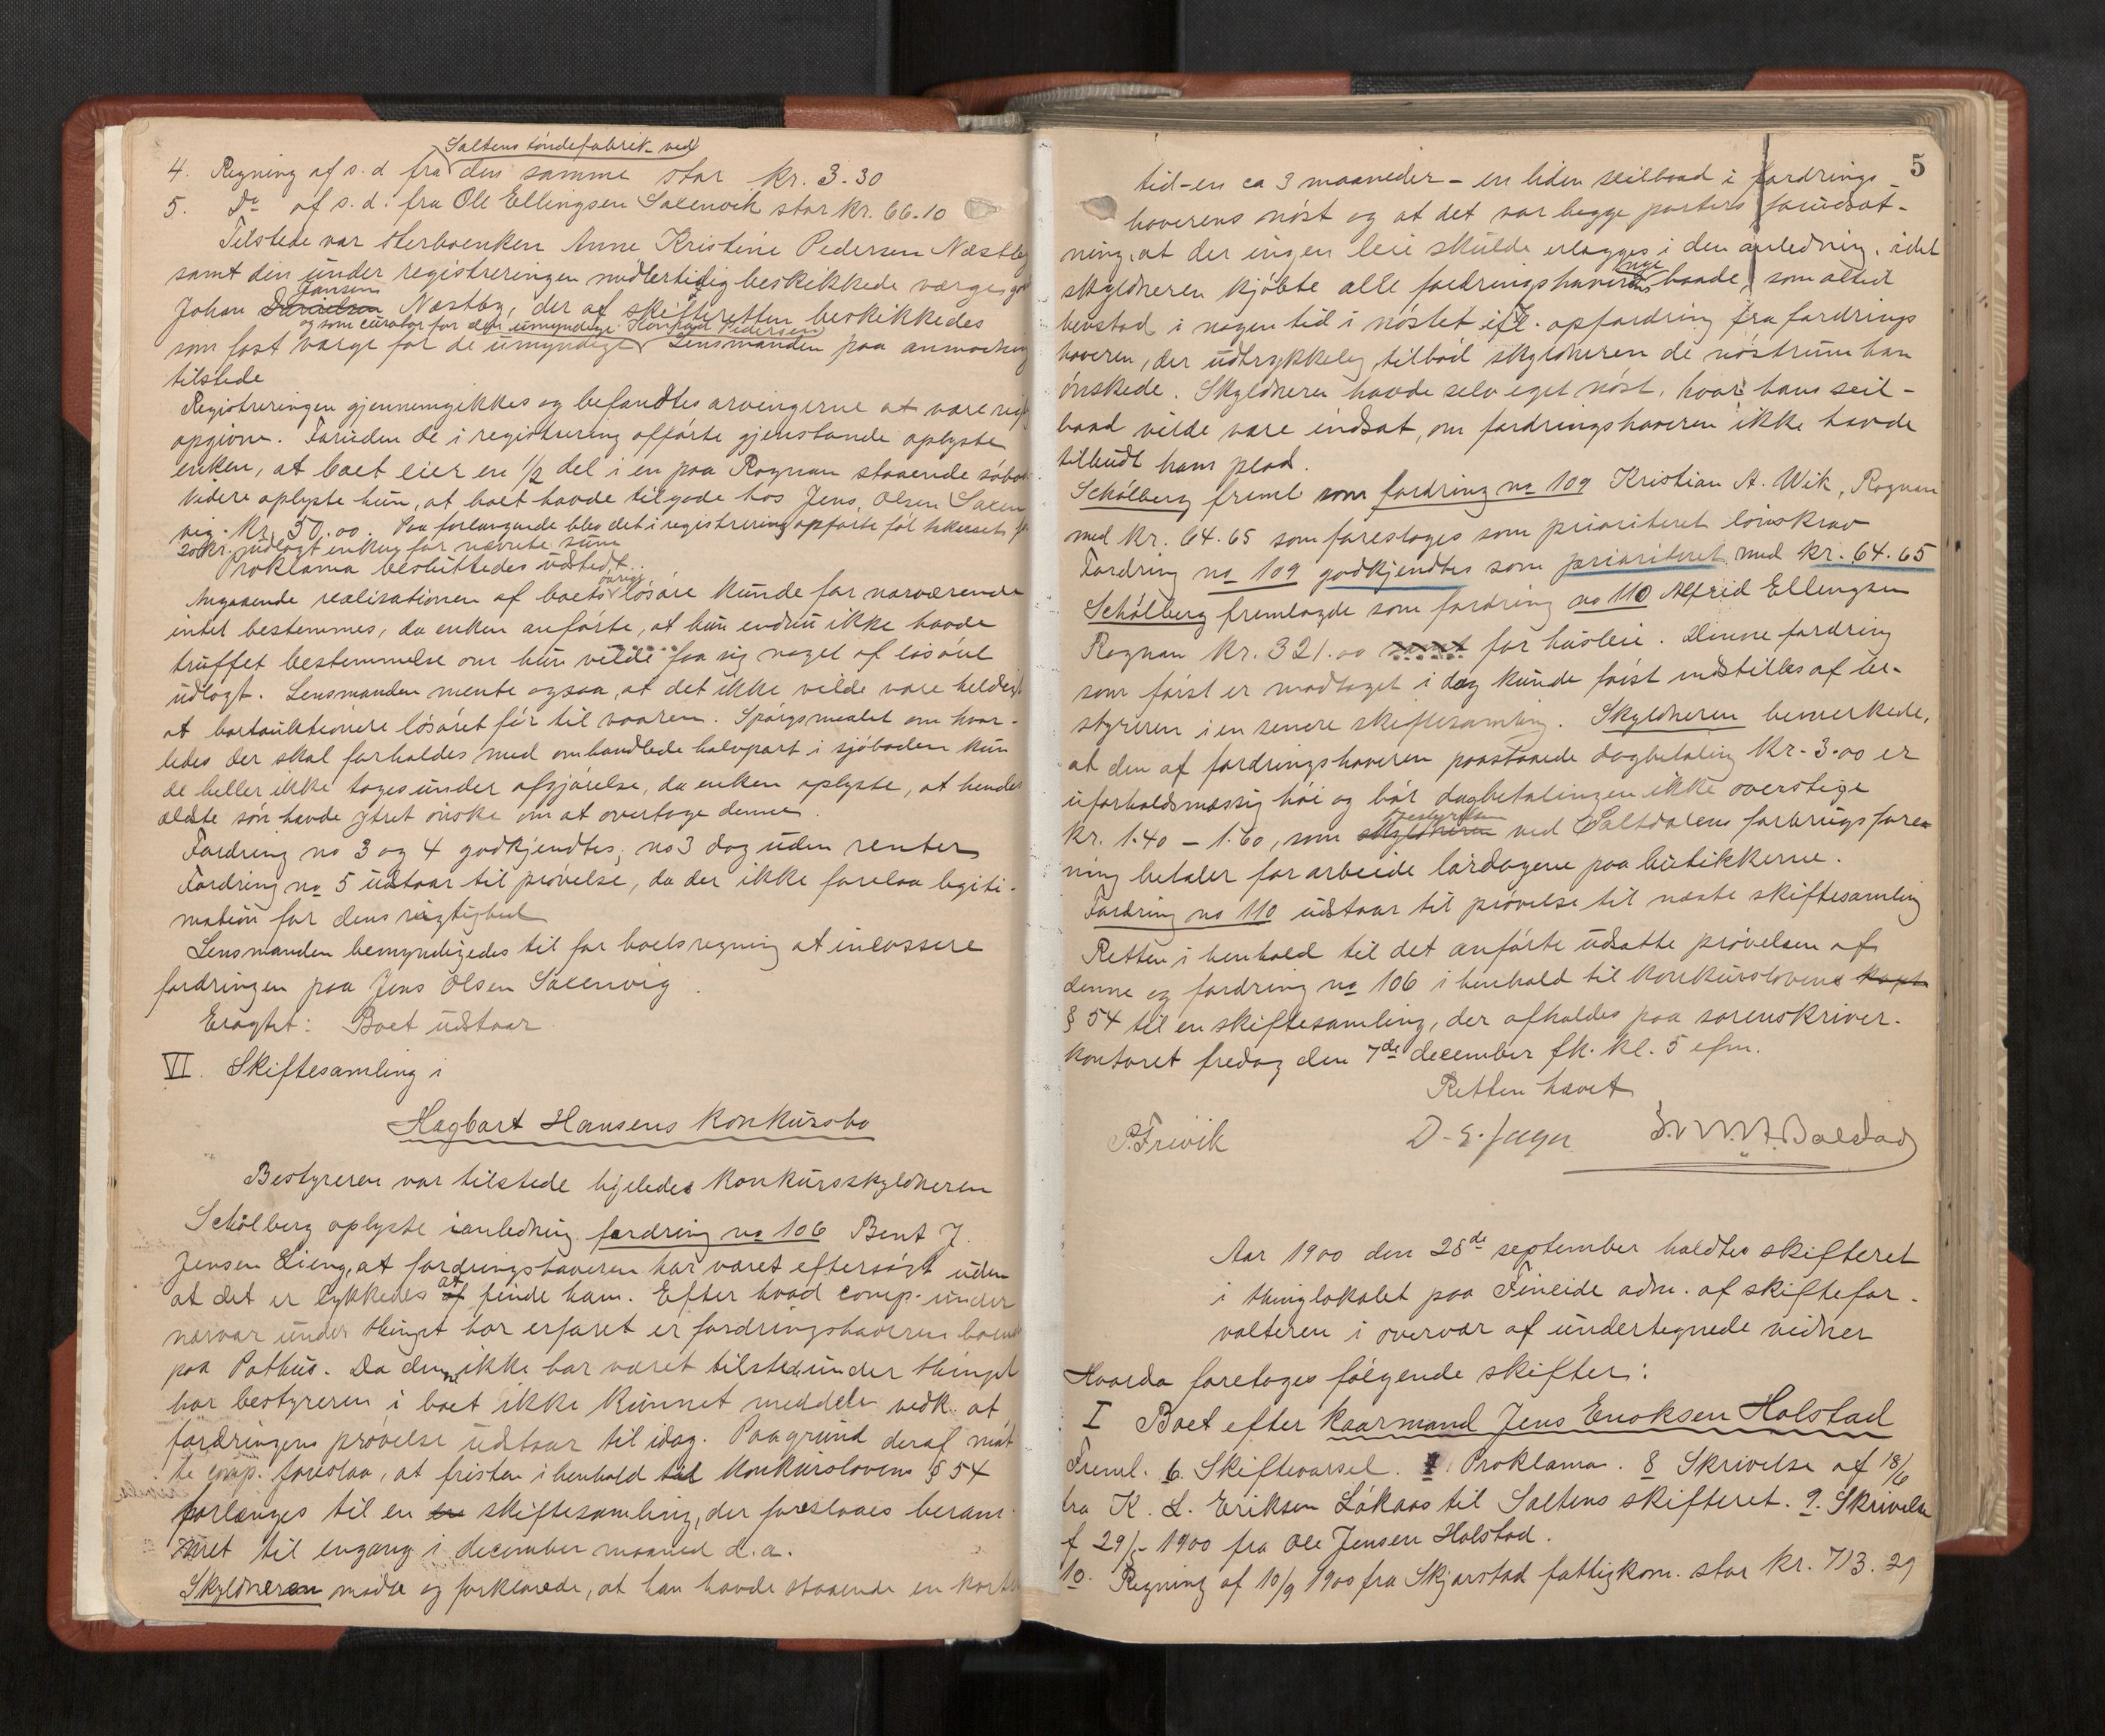 Saltens töndefabrik ved
4. Regning af s. d. fra den samme stor kr. 3.30
5. Do af s. d. fra Ole Ellingsen Saxenvik stor kr. 66.10
Tilstede var sterboenken Anne Kristine Pedersen Næstby
samt den under registreringen midlertidig beskikkede værge
Jansen
Johan Danielsen Næstby, der af skifteretten beskikkedes
og som curator for den umyndige Konrad Pedersen
som fast værge for de umyndige Lensmanden paa anmodning
tilstede
Registreringen gjennemgikkes og befandtes arvingerne at være
opgivne. Foruden de i registrering opförte gjenstande oplyste
enken, at boet eier en 1/2 del i en paa Rognan staaende
Videre oplyste hun, at boet havde tilgode hos Jens Olsen Saxen
vig kr. 50.00. Paa forlangende blev det i registrering opförte föl taxeret
20 kr. udlagt enken for nævnte sum
Proklama besluttedes udstedt.
övrige
Angaaende realisationen af boets lösöre kunde for nærværende
intet bestemmes, da enken anförte, at hun endnu ikke havde
truffet bestemmelse om hun vilde faa sig noget af lösöret
udlagt. Lensmanden mente ogsaa, at det ikke vilde være heldigt
at bortauktionere lösöret för til vaaren. Spörgsmaalet om hvor-
ledes der skal forholdes med omhandlede halvpart i sjöboden kun
de heller ikke tages under afgjörelse, da enken oplyste, at hendes
ældste sön havde ytret önske om at overtage denne.
Fordring no 3 og 4 godkjendtes, no 3 dog uden renter
Fordring no 5 udstaar til prövelse, da der ikke forelaa legiti-
mation for dens rigtighed
Lensmanden bemyndigedes til for boets regning at incassere
fordringen paa Jens Olsen Saxenvig.
Eragtet: Boet udstaar
VI. Skiftesamling i
Hagbart Hansens konkursbo
Bestyreren var tilstede ligeledes konkursskyldneren
Schölberg oplyste i anledning fordring no 106 Bent J.
Jensen Lieng, at fordringshaveren har været eftersögt uden
at
at det er lykkedes af finde ham. Efter hvad comp. under
nærvær under thinget har erfaret er fordringshaveren boende
paa Pothus. Da denne ikke har været tilstede under thinget
har bestyreren i boet ikke kunnet meddele vedk. at
fordringens prövelse udstaar til idag. Paa grund deraf maat
te comp. foreslaa, at fristen i henhold til konkurslovens § 54
forlænges til en en skiftesamling, der foreslaaes beram-
met til engang i december maaned d. a.
Skyldneren mödte og forklarede, at han havde staaende en kort
5
tid - en ca 3 maaneder - en liden seilbaad i fordrings-
haverens nöst og at det var begge parters forudsæt-
ning, at der ingen leie skulde erlægges i den anledning, idet
nye
skyldneren kjöbte alle fordringshaverens baade, som altid
henstod i nogen tid i nöstet ifl. opfordring fra fordrings
haveren, der udtrykkelig tilböd skyldneren de nöstrum han
önskede. Skyldneren havde selv eget nöst, hvor hans seil-
baad vilde være indsat, om fordringshaveren ikke havde
tilbudt ham plads.
Schölberg freml. som fordring no 109 Kristian A. Wik, Rognan
med kr. 64.65 som foreslages som prioriteret lönskrav
Fordring no 109 godkjendtes som prioriteret med kr. 64.65
Schölberg fremlagde som fordring no 110 Alfrid Ellingsen
Rognan kr. 321.00 samt for husleie. Denne fordring
som först er modtaget i dag kunde först indstilles af be-
styreren i en senere skiftesamling. Skyldneren bemærkede,
at den af fordringshaveren paastaaede dagbetaling kr. 3.00 er
uforholdsmæssig höi og bör dagbetalingen ikke overstige
bestyrelsen
kr. 1.40 - 1.60, som skyldneren ved Saltdalens forbrugsfore-
ning betaler for arbeide lördagene paa butikkerne.
Fordring no 110 udstaar til prövelse til næste skiftesamling
Retten i henhold til det anförte udsatte prövelsen af
denne og fordring no 106 i henhold til konkurslovens kapt
§ 54 til en skiftesamling, der afholdes paa sorenskriver-
kontoret fredag den 7de december fk. kl. 5 efm.
Retten hævet
P. Frivik D. E. Jæger Balstad
Aar 1900 den 28de september holdtes skifteret
i thinglokalet paa Fineide adm. af skiftefor-
valteren i overvær af undertegnede vidner
Hvorda foretoges fölgende skifter:
I Boet efter kaarmand Jens Enoksen Holstad
Freml. 6. Skiftevarsel. 7. Proklama. 8 Skrivelse af 18/6
fra K. L. Eriksen Løkaas til Saltens skifteret. 9. Skrivelse
f 29/- 1900 fra Ole Jensen Holstad.
10. Regning af 10/9 1900 fra Skjærstad fattigkom. stor kr. 713.29